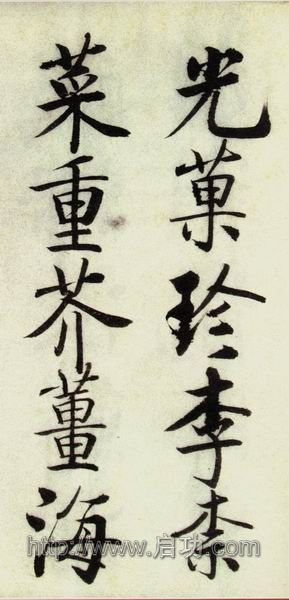 光菓珍李柰
菜重芥薑海
http://www.启功.com